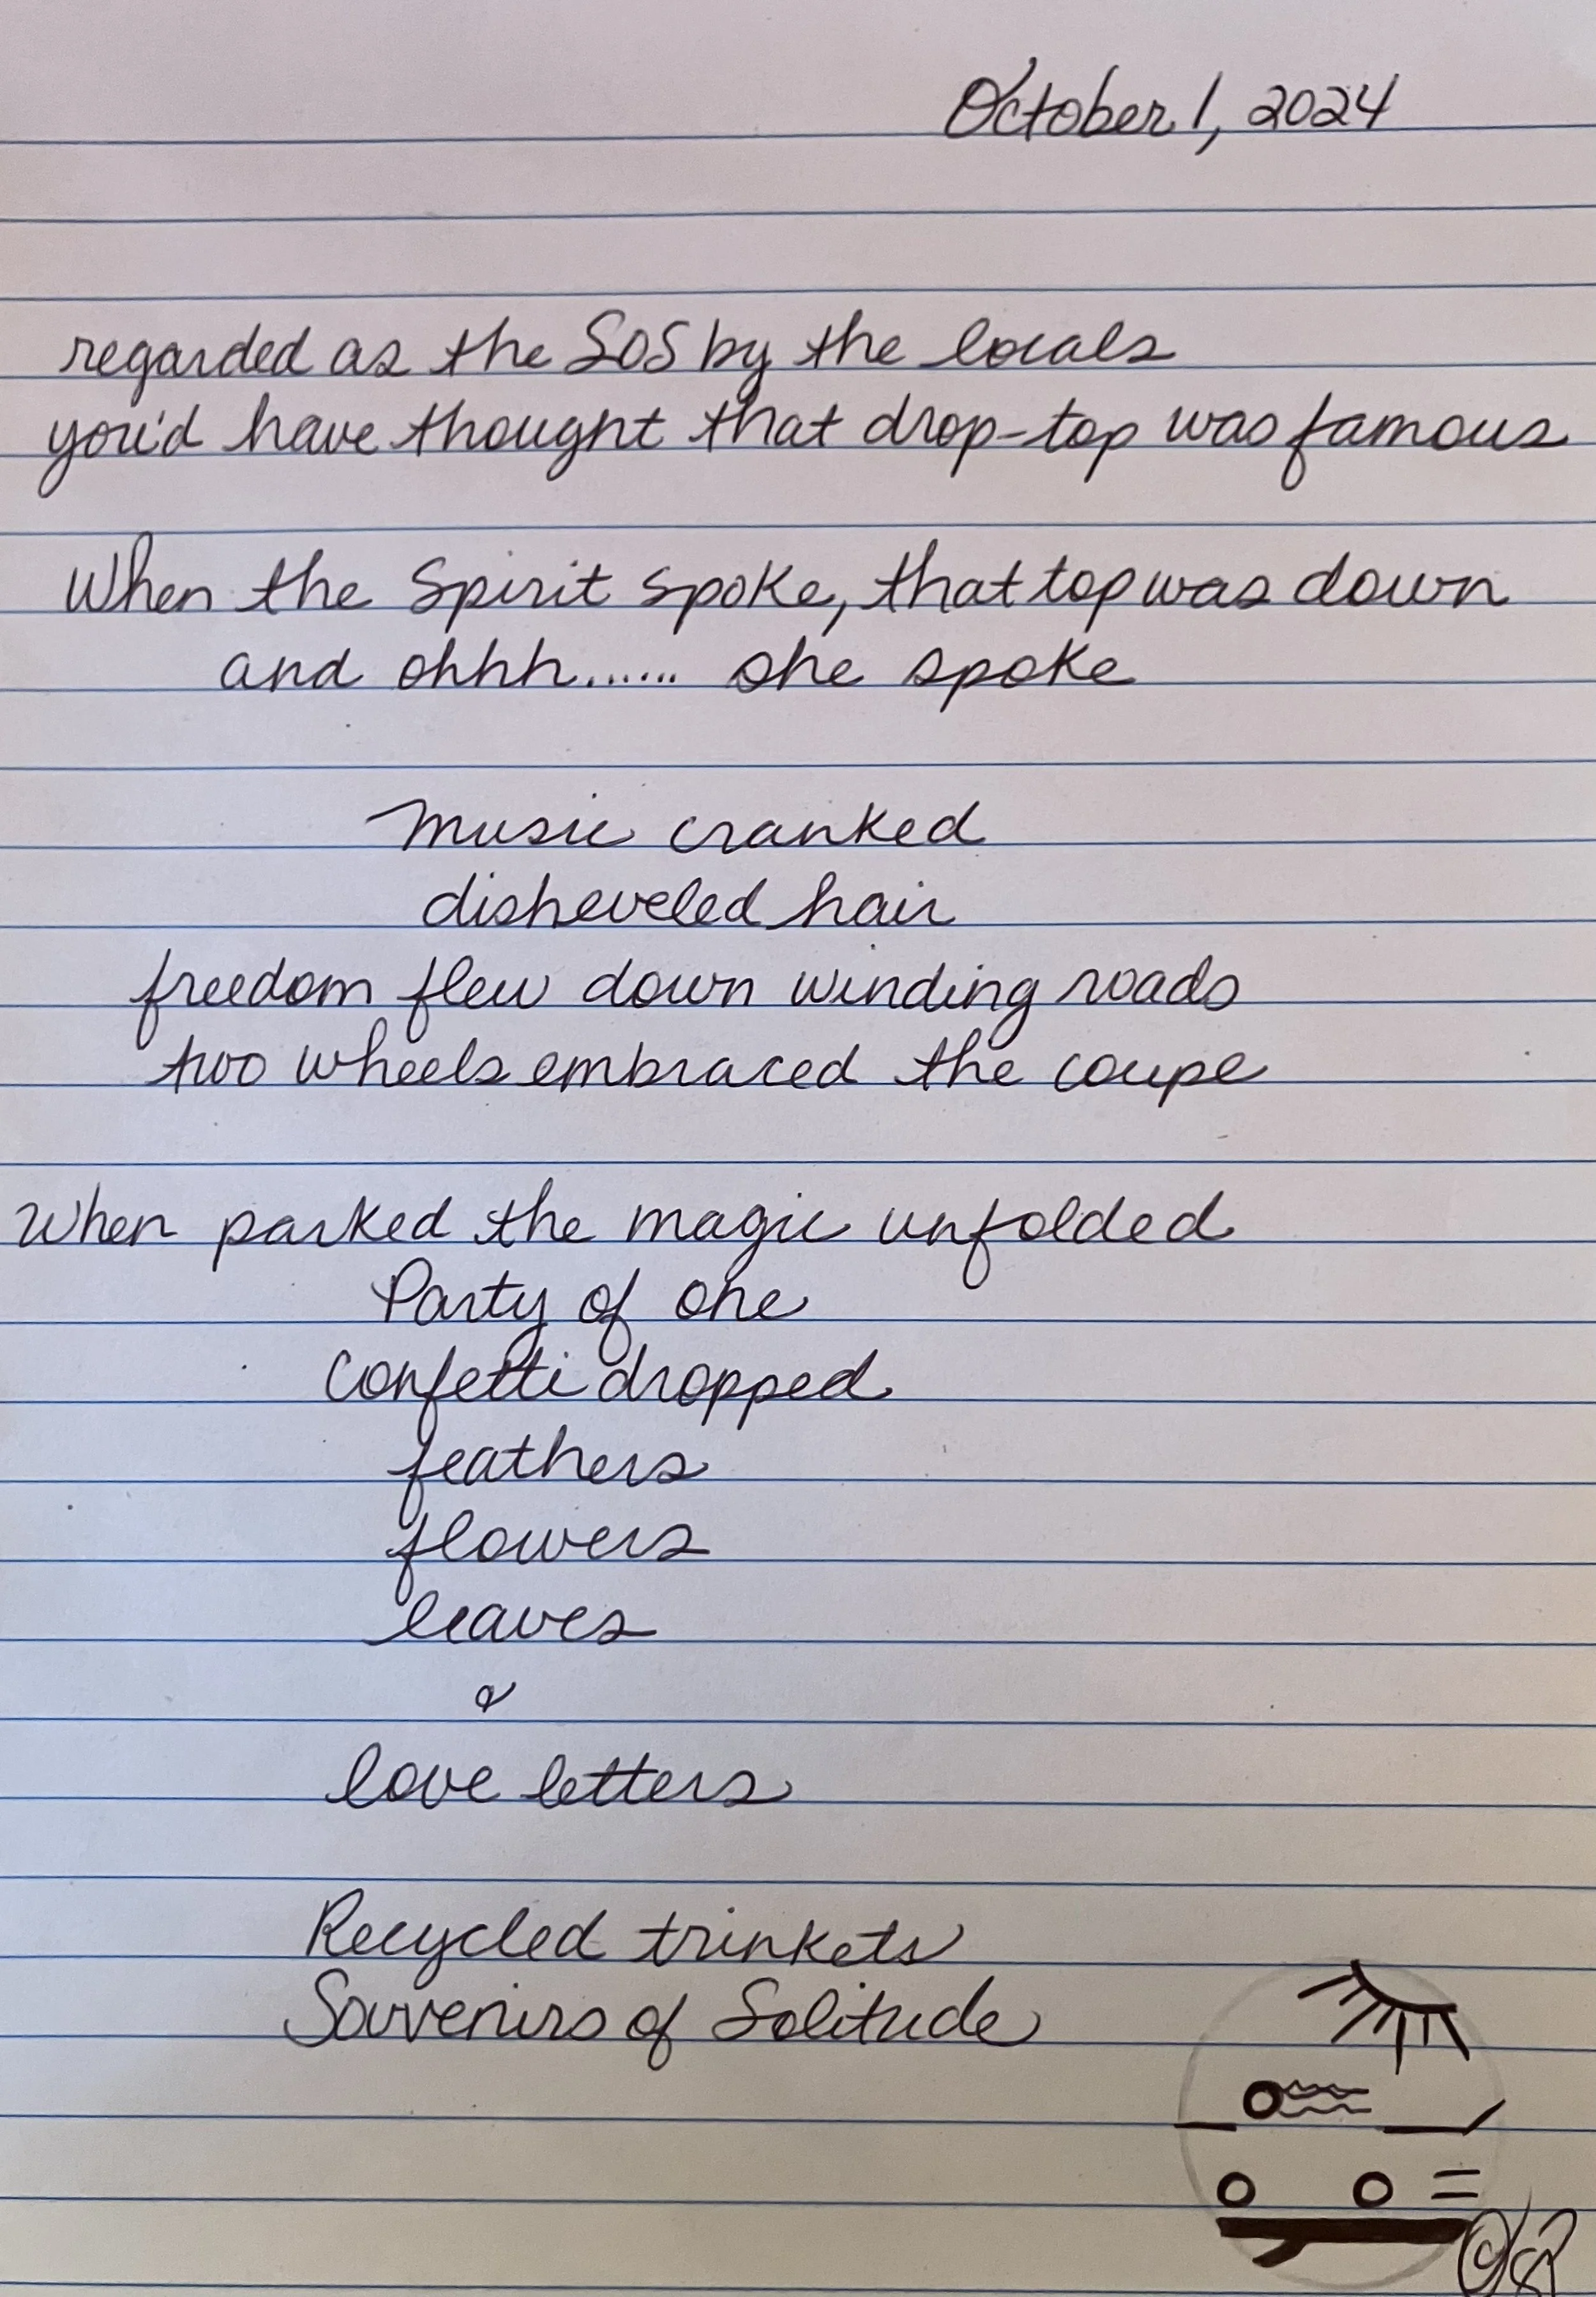 October 1, 2024
regarded as the SOS by the locals
you'd have thought that drop-top was famous
When the Spirit spoke, that top was down
and ohhh...... she spoke
music cranked
disheveled hair
freedom flew down winding roads
two wheels embraced the coupe
When parked the magic unfolded
Party of one
Confetti dropped
feathers
flowers
leaves
&
love letters
Recycled trinkets
Souvenirs of Solitude